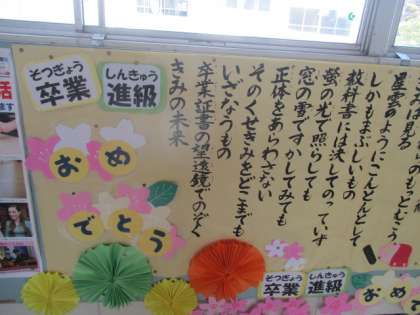 そつぎょう
卒業
しんきゅう
進級
おめ
でとう
星雲のようにこんとんとして
しかもまぶしいもの
教科書には決してのっていず
蛍の光で照らしても
窓の雪ですかしてみても
正体をあらわさない
そのくせきみをどこまでも
いざなうもの
卒業証書の望遠鏡でのぞく
きみの未来
そつぎょう
卒業
しんきゅう
進級
おめ